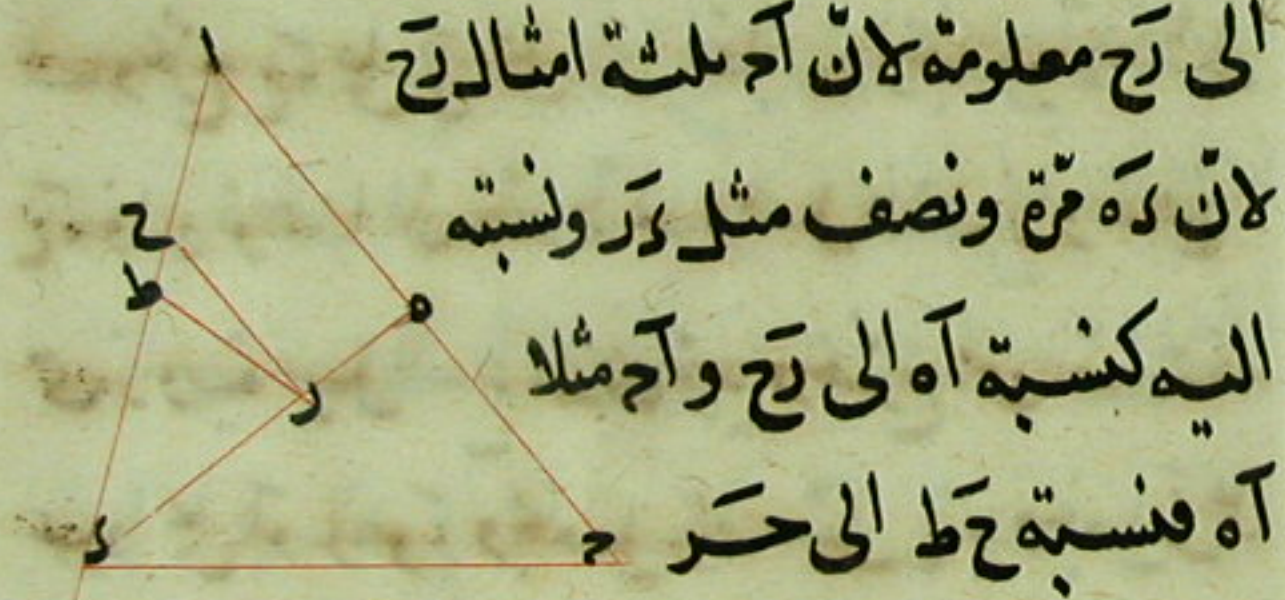 الى زَح معلومة لانّ آحـ ثلثة امثال زَح
لانّ دَه مرّة ونصف مثل دَز ونسبته
اليه كنسبة آه الى زَح و آحـ مثلا
آه فنسبة حَط الى حَـز
ا
ح
ط
ه
ز
د
حـ